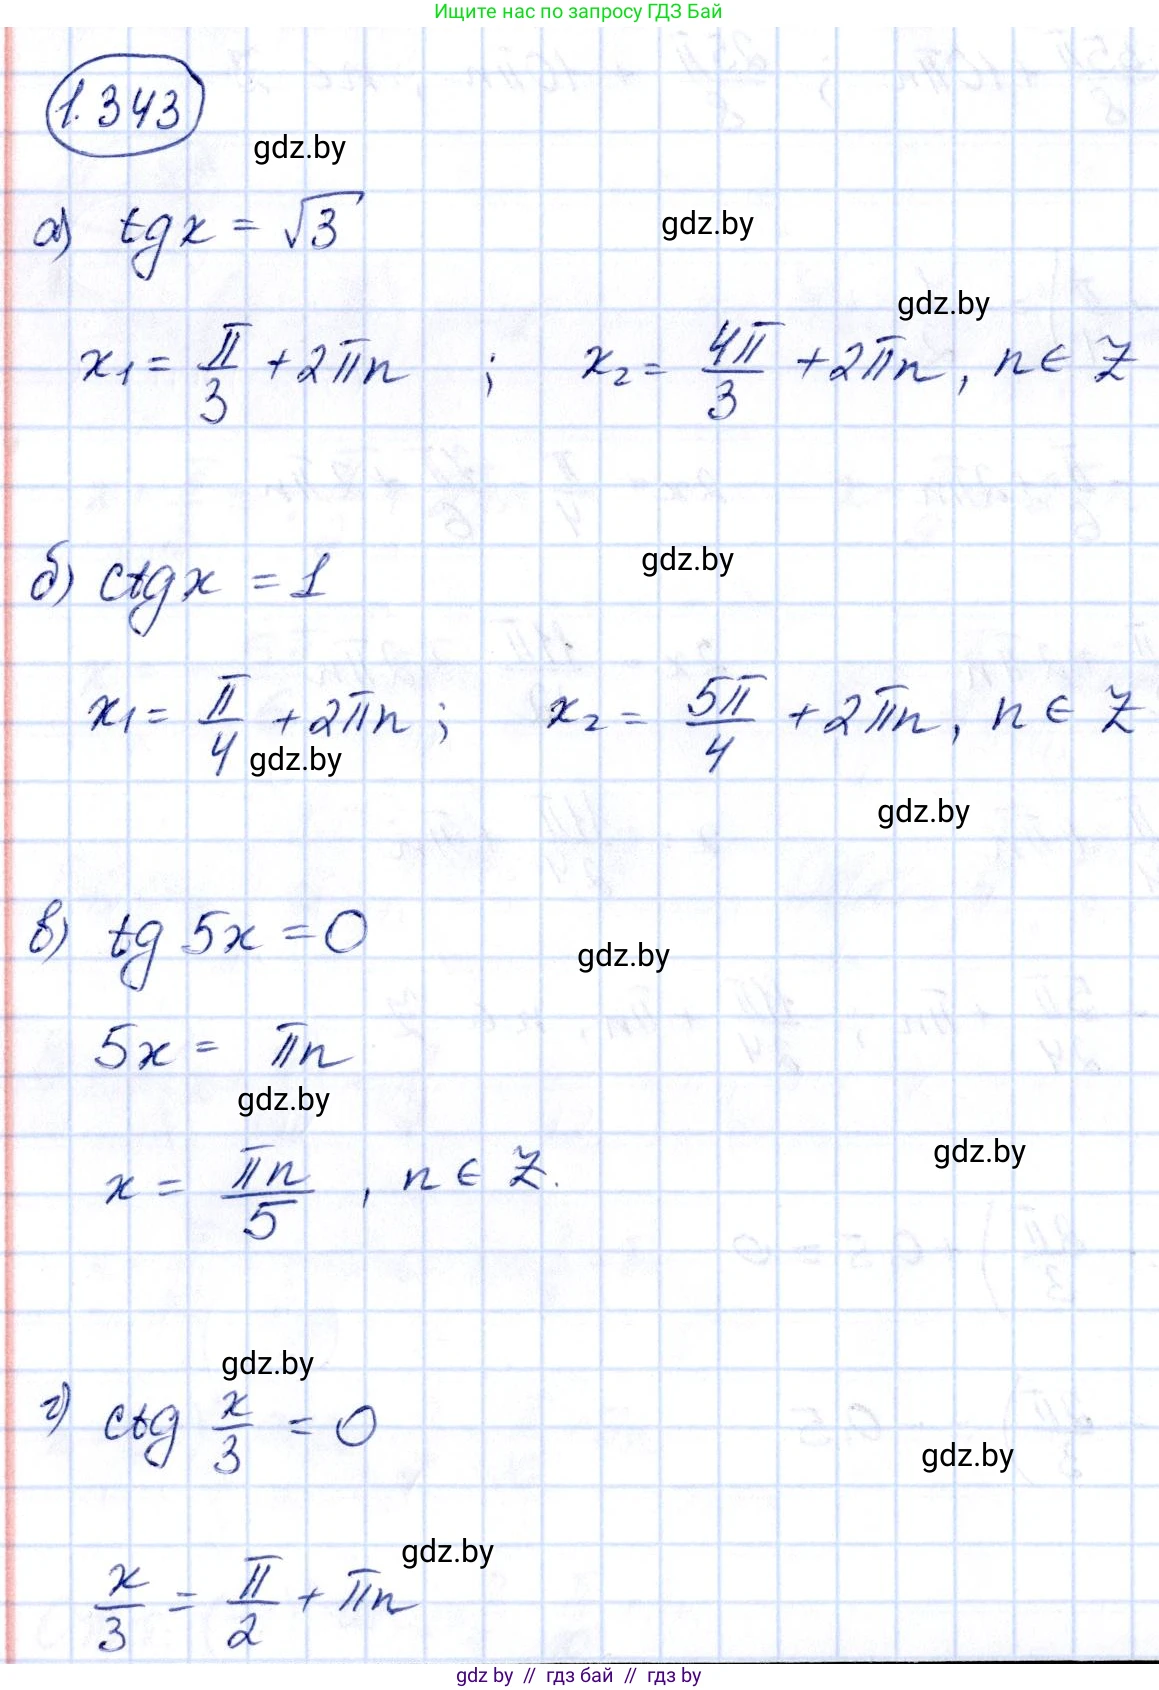 Ищите нас по запросу ГДЗ Бай
1.343
gdz.by
а) tgx = √3
gdz.by
gdz.by
x₁ = π/3 + 2πn ; x₂ = 4π/3 + 2πn, n ∈ Z
gdz.by
б) ctgx = 1
x₁ = π/4 + 2πn ; x₂ = 5π/4 + 2πn, n ∈ Z
gdz.by
gdz.by
в) tg 5x = 0
gdz.by
5x = πn
gdz.by
gdz.by
x = πn/5 , n ∈ Z.
gdz.by
г) ctg x/3 = 0
gdz.by
gdz.by
x/3 = π/2 + πn
gdz by // гдз бай // гдз by